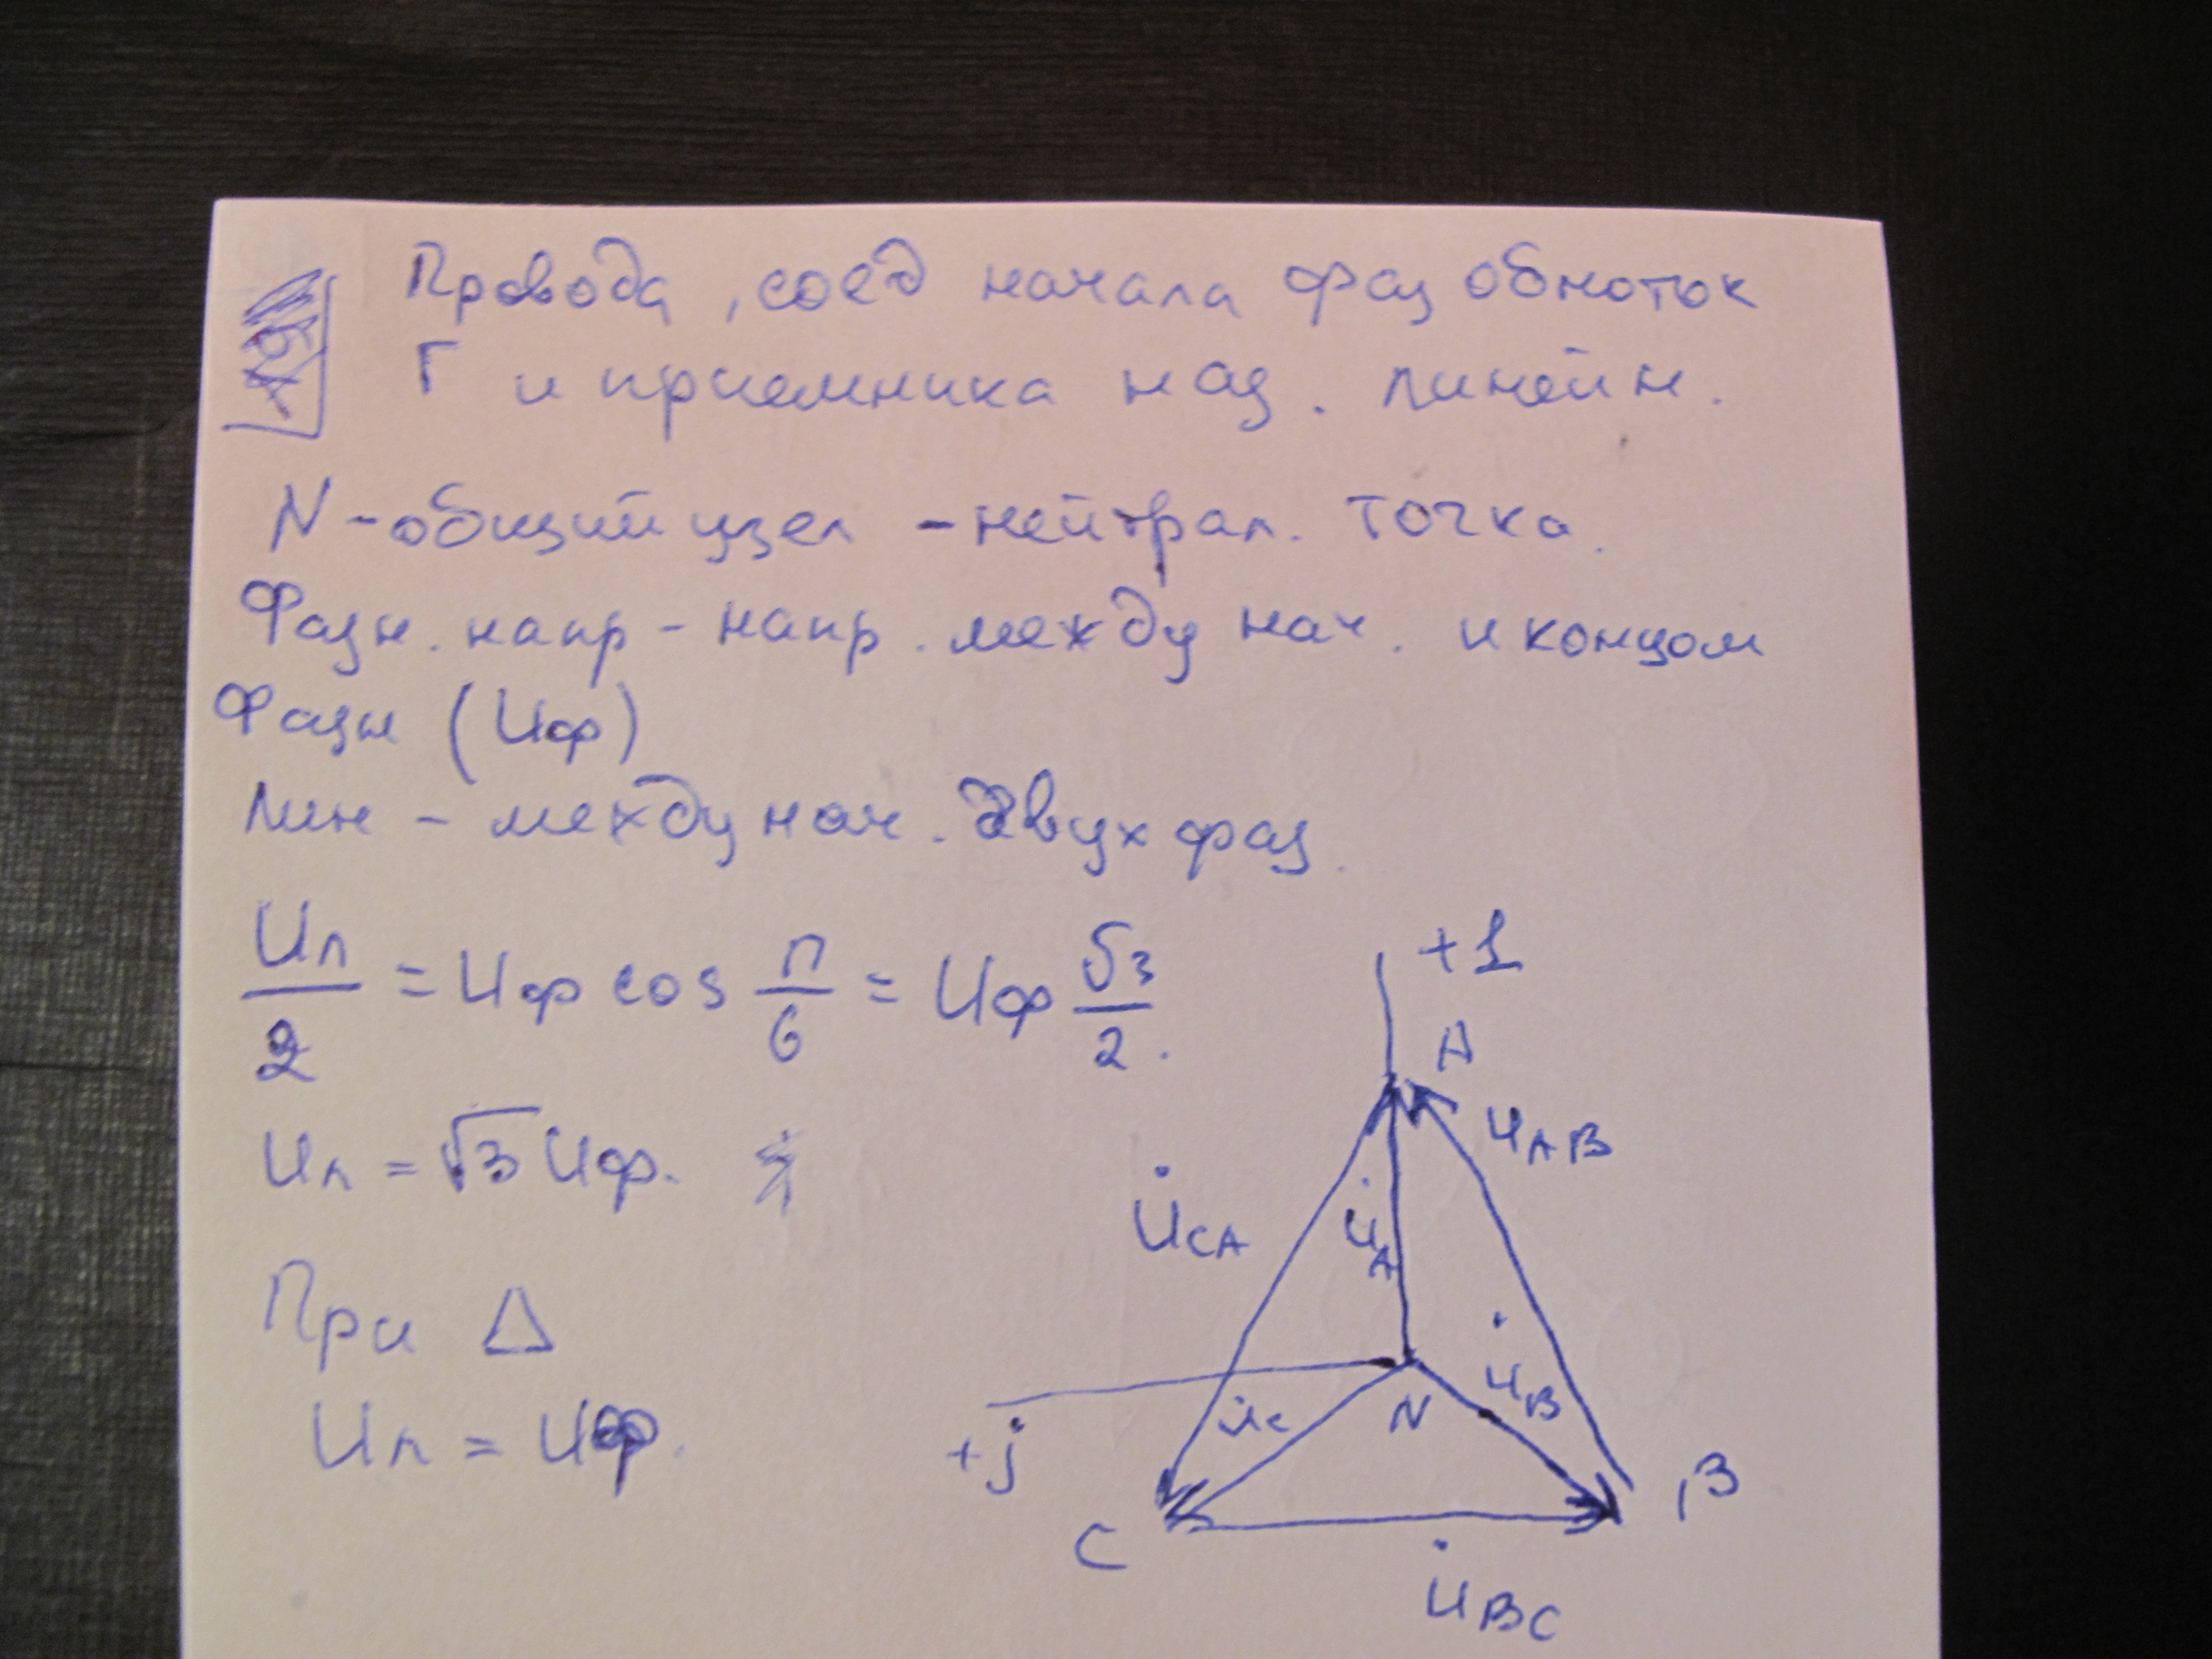 19
Провода, соед начала фаз обмоток
Г и приемника наз. линейн.
N - общий узел - нейтрал. точка.
Фазн. напр - напр. между нач. и концом
Фазн (Uф)
Лин - между нач. двух фаз.
Uл/2 = Uф cos π/6 = Uф √3/2.
Uл = √3 Uф.
При Δ
Uл = Uф.
+1
A
U̇AB
U̇CA
U̇A
U̇B
U̇C
N
+j
B
C
U̇BC